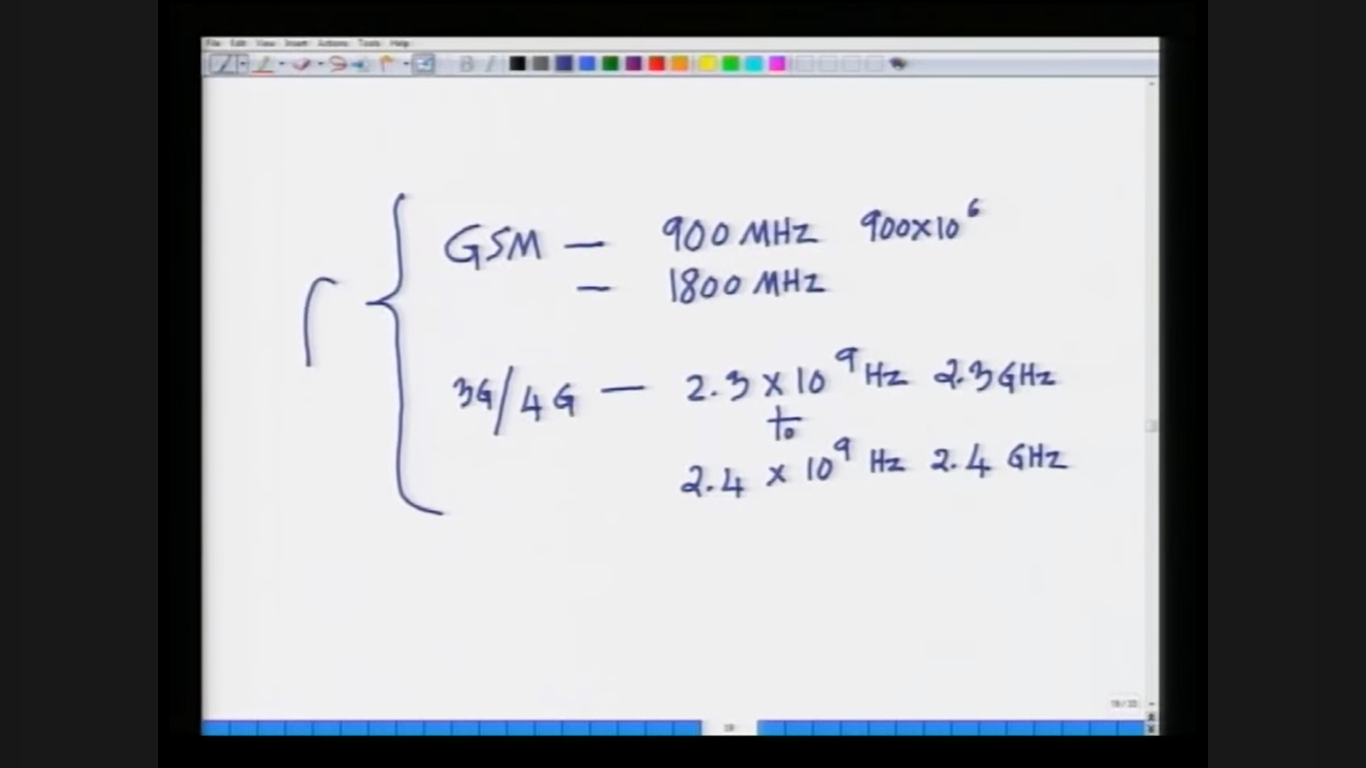 File Edit View Insert Actions Tools Help
GSM — 900 MHz 900×10⁶
— 1800 MHz
3G/4G — 2.3 × 10⁹ Hz 2.3 GHz
to
2.4 × 10⁹ Hz 2.4 GHz